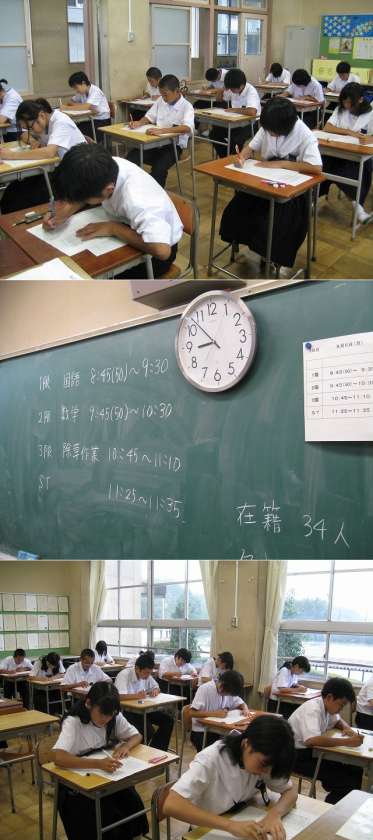 12
1
2
3
4
5
6
7
8
9
10
11
1限 国語 8:45(50)~9:30
2限 数学 9:45(50)~10:30
3限 除草作業 10:45~11:10
ST 11:25~11:35
在籍 34人
1限 8:45(50)~ 9:30
2限 9:45(50)~10:30
3限 10:45~11:10
ST 11:25~11:35